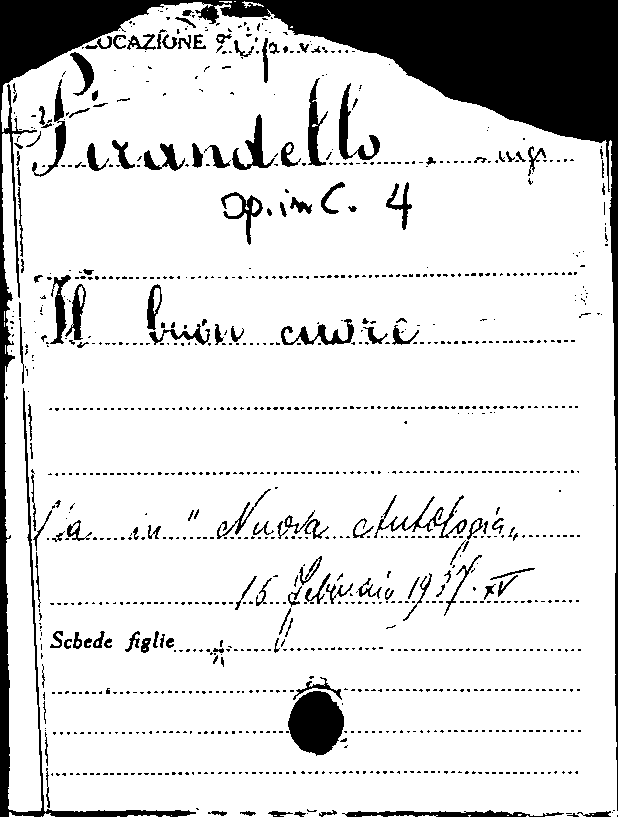 LOCAZIONE
Pirandello Luigi
Op. in C. 4
Il buon cuore
Sta in "Nuova Antologia„
16 febbraio 1937. XV
Schede figlie